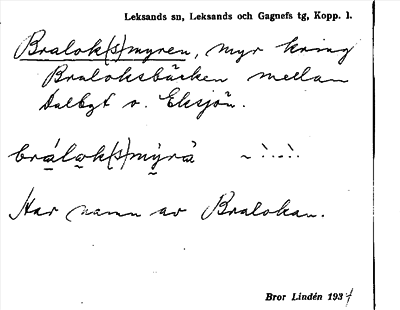 Leksands sn, Leksands och Gagnefs tg, Kopp. l.
Bralok(s)myren, myr kring
Braloksbäcken mellan
Dalbyt o. Eksjön.
brálok(s)mỳrà
Har namn av Bralokan.
Bror Lindén 1937